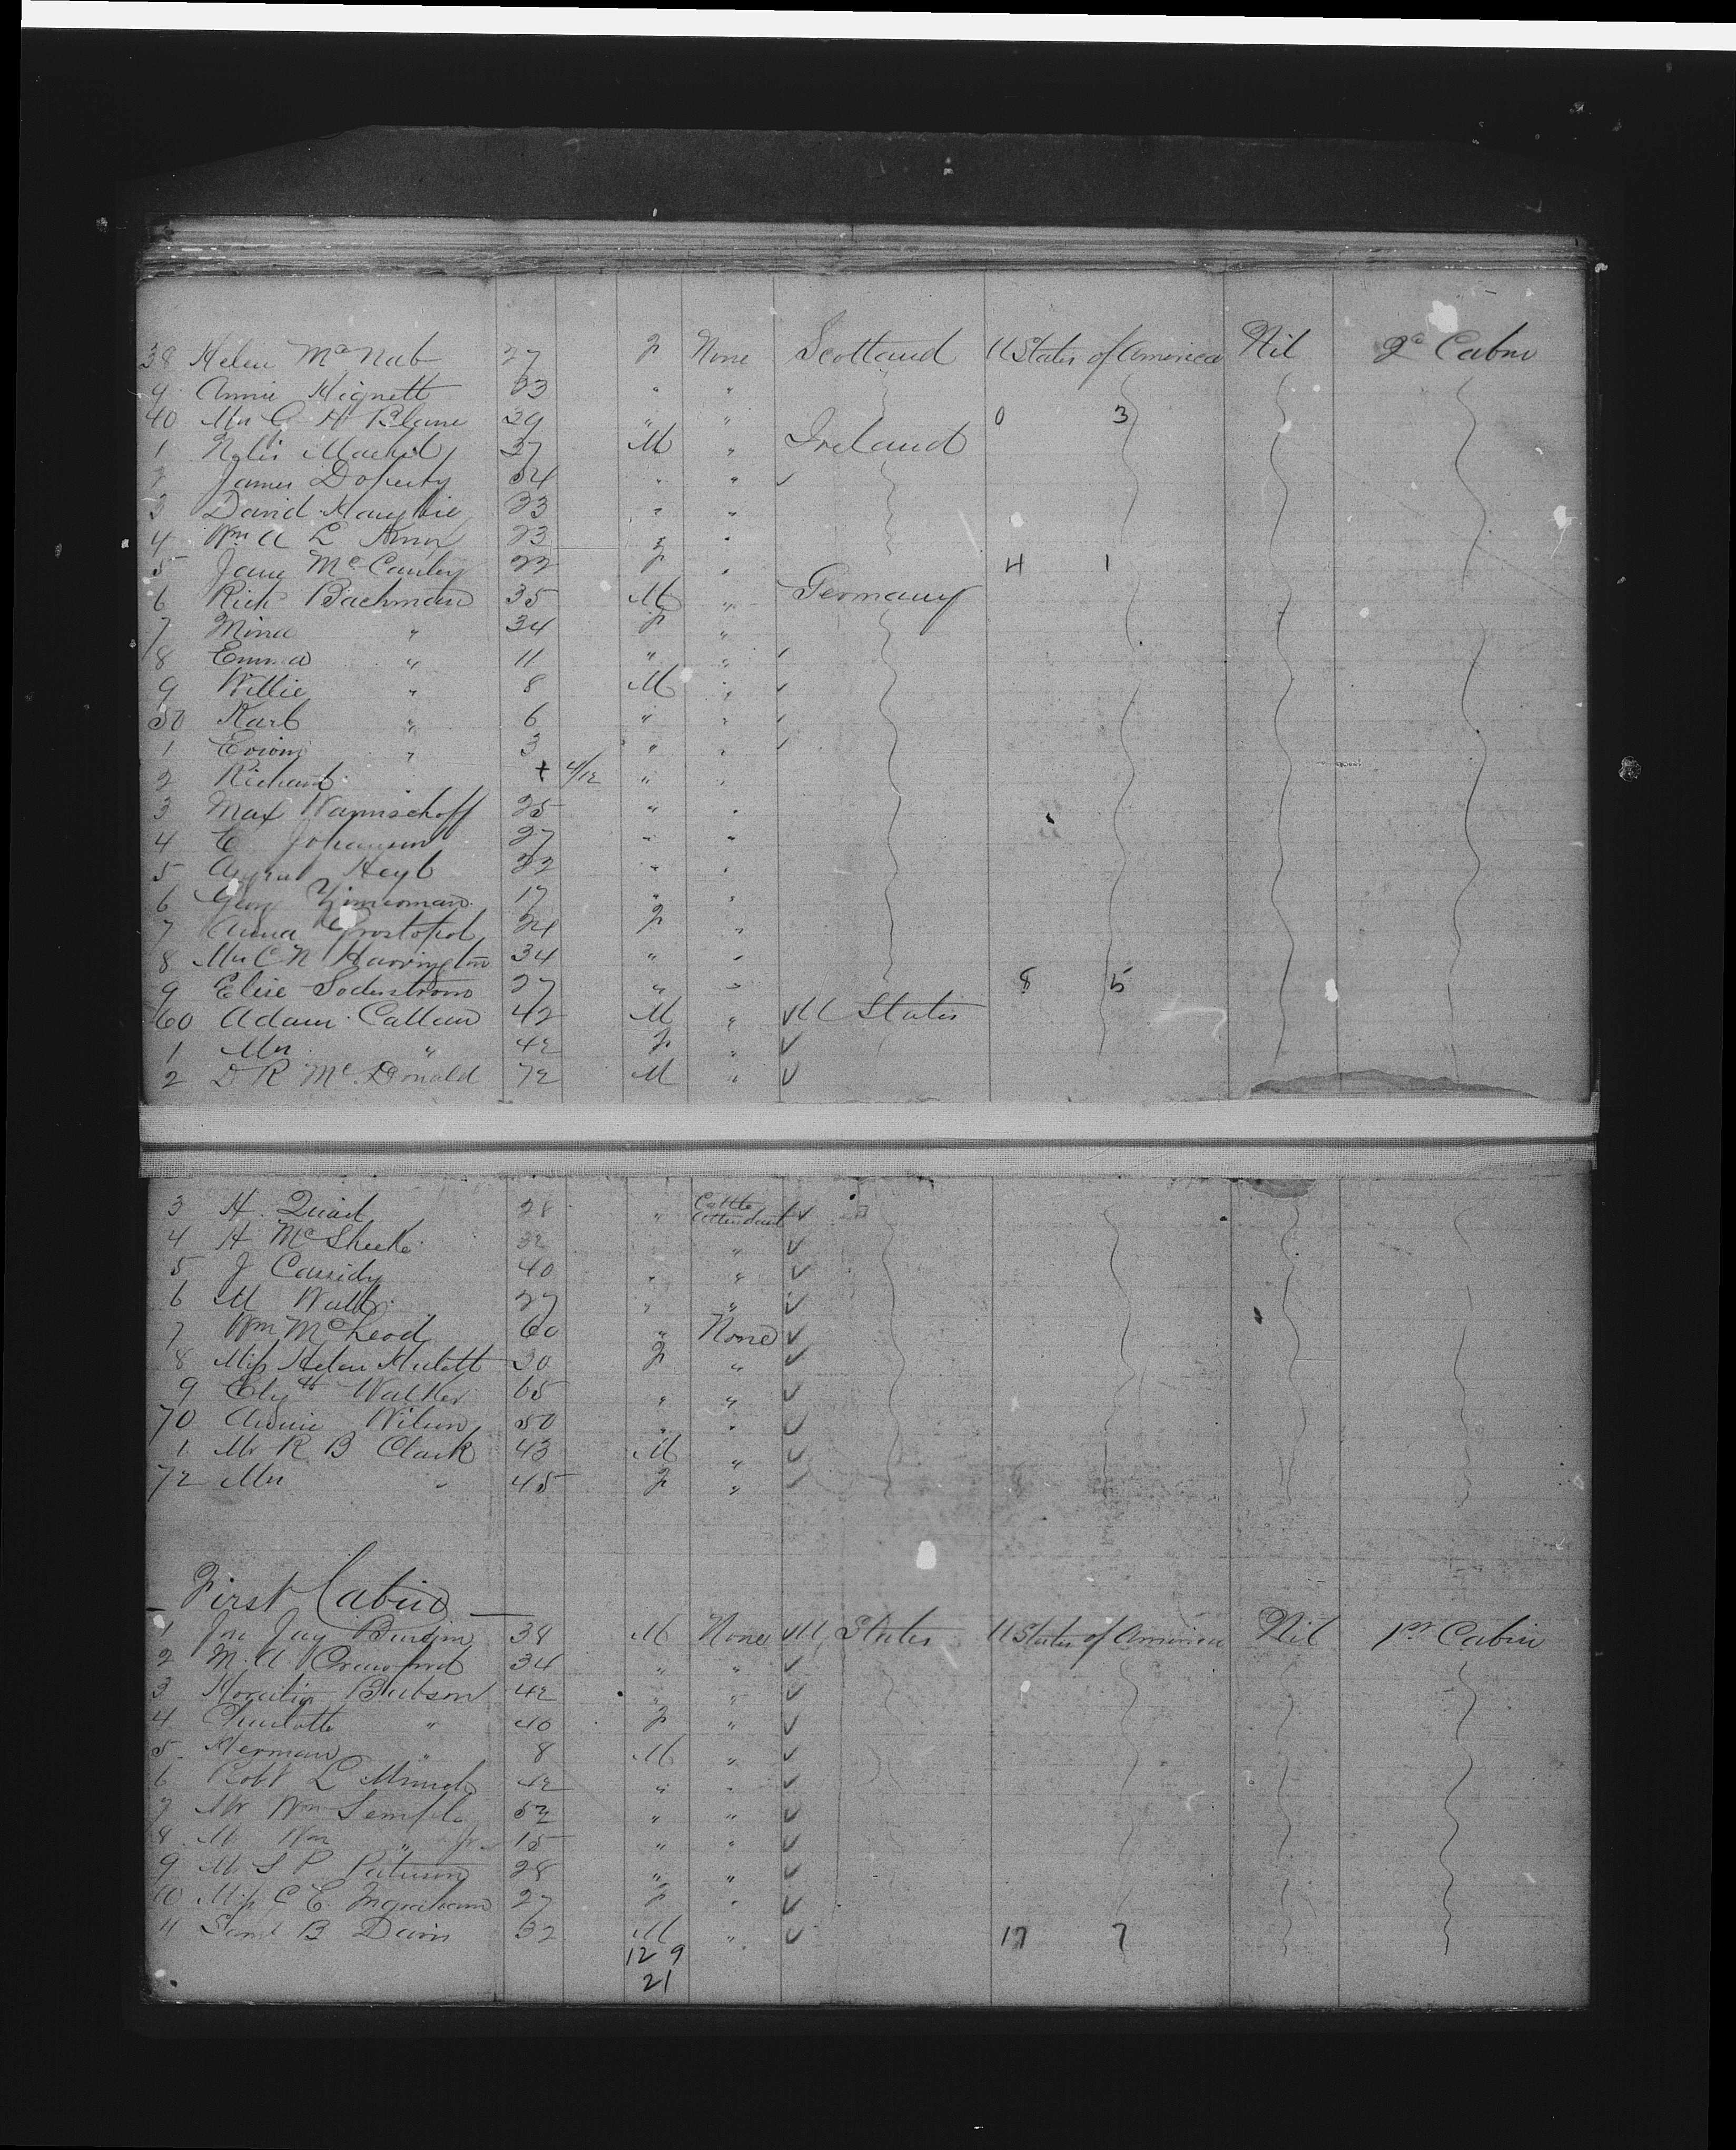 38 Helen McNab 27 F None Scotland U States of America Nil 2d Cabin
9 Annie Hignett 23 " "
40 Mrs C H Blane 29 " " 0 3
1 37 M " Ireland
2 James Doherty 54 " "
3 David 23 " "
4 Wm A L Knox 23 " "
5 Jane McCauley 22 F " 4 1
6 Rich Bachman 35 M " Germany
7 Mina " 34 F "
8 Emma " 11 " "
9 Willie " 8 M "
50 Karl " 6 " "
1 Erwin " 3 " "
2 Richard 4/12 " "
3 Max Wannischoff 25 " "
4 E Johannsen 27 " "
5 August Heyl 22 " "
6 Georg Zimmerman 17 " "
7 Anna 24 F "
8 Mrs C N Harrington 34 " "
9 Elise Soderstrom 27 " " 8 5
60 Adam Callan 42 M " U States
1 Mrs " 42 F "
2 D R McDonald 72 M "
3 H Quail 28 " Cattle Attendant
4 H McSheeke 32 "
5 J Cassidy 40 " "
6 M Wall 27 " "
7 Wm McLeod 60 " None
8 Miss Helen 30 F "
9 Elyth Walker 65 " "
70 Annie Wilson 50 " "
1 Mr R B Clark 43 M "
72 Mrs " 45 F "
First Cabin
1 Jno Jay 38 M None U States U States of America Nil 1st Cabin
2 M. A Crawford 34 " "
3 Horatio Bubson 42 " "
4 Charlotte " 40 F "
5 Herman " 8 M "
6 Robt L 42 " "
7 Mr Wm Semple 52 " "
8 Mr Wm " Jr 15 " "
9 Mr S P Paterson 28 " "
10 Miss C E Ingraham 27 F "
11 Saml B Davis 32 M " 17 7
12 9
21